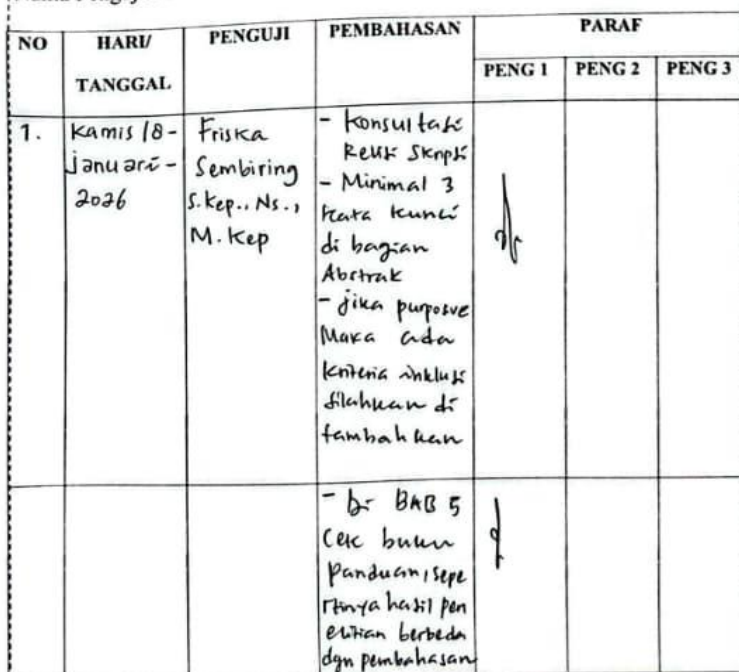 NO HARI/ PENGUJI PEMBAHASAN PARAF
TANGGAL PENG 1 PENG 2 PENG 3
1.
Kamis 18-
Januari-
2026
Friska
Sembiring
S.Kep., Ns.,
M.Kep
- Konsultasi
Skripsi
- Minimal 3
Kata kunci
di bagian
Abstrak
- jika purposve
Maka ada
kriteria inklusi
silahkan di
tambahkan
- Di BAB 5
Cek buku
panduan, sepe
rtinya hasil pen
elitian berbeda
dgn pembahasan